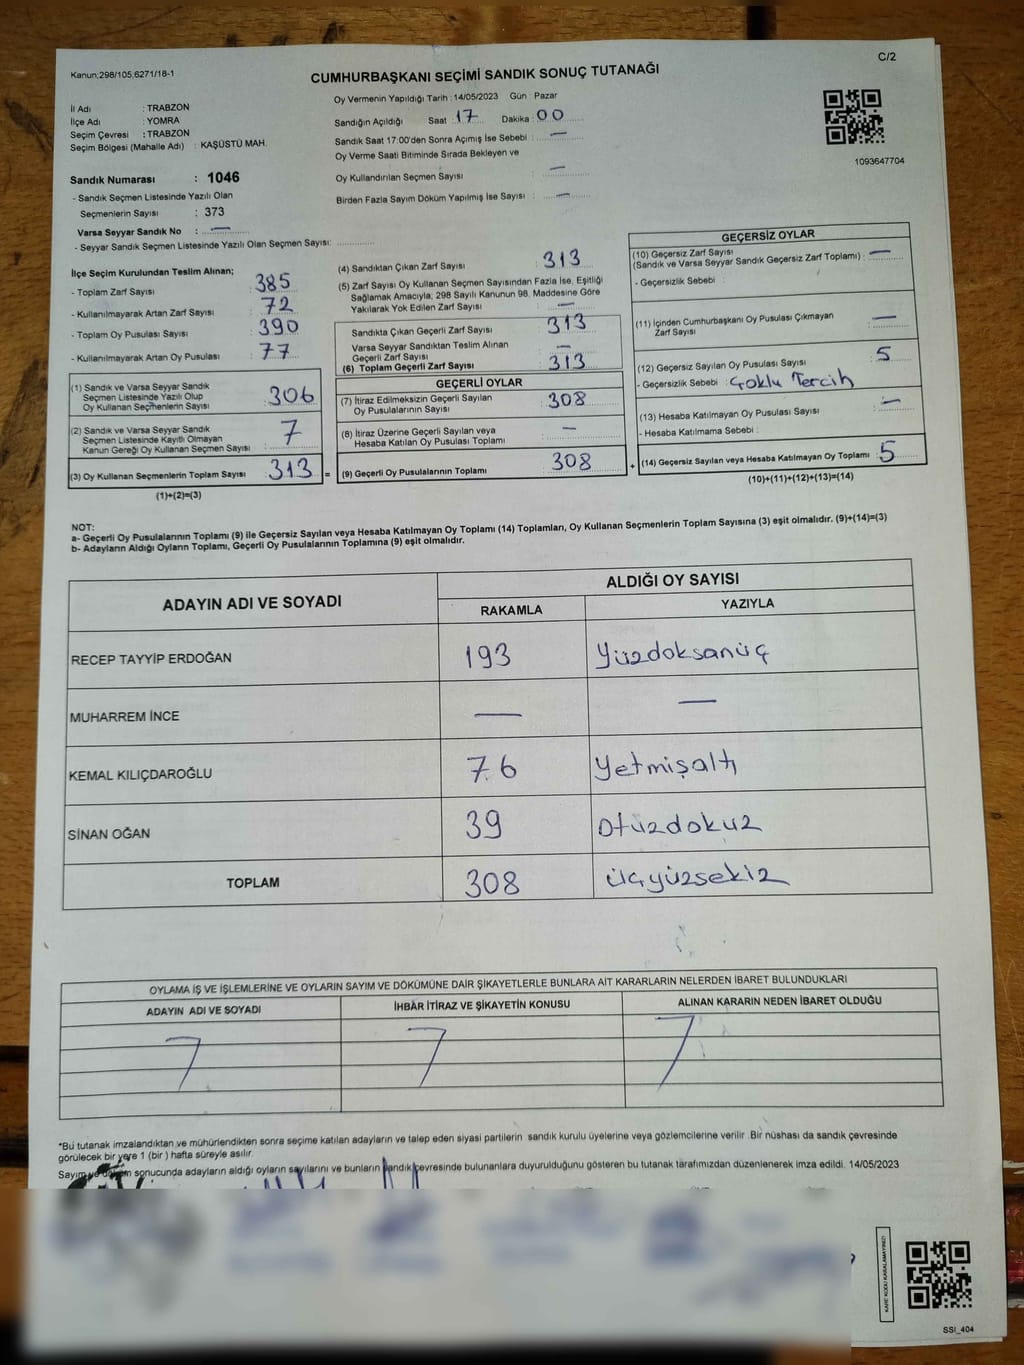 Kanun;298/105,6271/18-1
C/2
CUMHURBAŞKANI SEÇİMİ SANDIK SONUÇ TUTANAĞI
İl Adı : TRABZON
İlçe Adı : YOMRA
Seçim Çevresi : TRABZON
Seçim Bölgesi (Mahalle Adı) : KAŞÜSTÜ MAH.
Sandık Numarası : 1046
- Sandık Seçmen Listesinde Yazılı Olan
Seçmenlerin Sayısı : 373
Varsa Seyyar Sandık No : —
- Seyyar Sandık Seçmen Listesinde Yazılı Olan Seçmen Sayısı:
Oy Vermenin Yapıldığı Tarih : 14/05/2023 Gün : Pazar
Sandığın Açıldığı Saat : 17 Dakika : 00
Sandık Saat 17:00'den Sonra Açımış İse Sebebi : —
Oy Verme Saati Bitiminde Sırada Bekleyen ve
Oy Kullandırılan Seçmen Sayısı : —
Birden Fazla Sayım Döküm Yapılmış İse Sayısı : —
1093647704
İlçe Seçim Kurulundan Teslim Alınan;
- Toplam Zarf Sayısı : 385
- Kullanılmayarak Artan Zarf Sayısı : 72
- Toplam Oy Pusulası Sayısı : 390
- Kullanılmayarak Artan Oy Pusulası : 77
(1) Sandık ve Varsa Seyyar Sandık
Seçmen Listesinde Yazılı Olup
Oy Kullanan Seçmenlerin Sayısı : 306
(2) Sandık ve Varsa Seyyar Sandık
Seçmen Listesinde Kayıtlı Olmayan
Kanun Gereği Oy Kullanan Seçmen Sayısı : 7
(3) Oy Kullanan Seçmenlerin Toplam Sayısı : 313 =
(1)+(2)=(3)
(4) Sandıktan Çıkan Zarf Sayısı : 313
(5) Zarf Sayısı Oy Kullanan Seçmen Sayısından Fazla İse, Eşitliği
Sağlamak Amacıyla; 298 Sayılı Kanunun 98. Maddesine Göre
Yakılarak Yok Edilen Zarf Sayısı : —
Sandıkta Çıkan Geçerli Zarf Sayısı : 313
Varsa Seyyar Sandıktan Teslim Alınan
Geçerli Zarf Sayısı : —
(6) Toplam Geçerli Zarf Sayısı : 313
GEÇERLİ OYLAR
(7) İtiraz Edilmeksizin Geçerli Sayılan
Oy Pusulalarının Sayısı : 308
(8) İtiraz Üzerine Geçerli Sayılan veya
Hesaba Katılan Oy Pusulası Toplamı : —
(9) Geçerli Oy Pusulalarının Toplamı : 308 +
GEÇERSİZ OYLAR
(10) Geçersiz Zarf Sayısı
(Sandık ve Varsa Seyyar Sandık Geçersiz Zarf Toplamı) : —
- Geçersizlik Sebebi :
(11) İçinden Cumhurbaşkanı Oy Pusulası Çıkmayan
Zarf Sayısı : —
(12) Geçersiz Sayılan Oy Pusulası Sayısı : 5
- Geçersizlik Sebebi : Çoklu Tercih
(13) Hesaba Katılmayan Oy Pusulası Sayısı : —
- Hesaba Katılmama Sebebi :
(14) Geçersiz Sayılan veya Hesaba Katılmayan Oy Toplamı : 5
(10)+(11)+(12)+(13)=(14)
NOT:
a- Geçerli Oy Pusulalarının Toplamı (9) ile Geçersiz Sayılan veya Hesaba Katılmayan Oy Toplamı (14) Toplamları, Oy Kullanan Seçmenlerin Toplam Sayısına (3) eşit olmalıdır. (9)+(14)=(3)
b- Adayların Aldığı Oyların Toplamı, Geçerli Oy Pusulalarının Toplamına (9) eşit olmalıdır.
ADAYIN ADI VE SOYADI
ALDIĞI OY SAYISI
RAKAMLA YAZIYLA
RECEP TAYYİP ERDOĞAN 193 Yüzdoksanüç
MUHARREM İNCE — —
KEMAL KILIÇDAROĞLU 76 Yetmişaltı
SİNAN OĞAN 39 Otuzdokuz
TOPLAM 308 üçyüzsekiz
OYLAMA İŞ VE İŞLEMLERİNE VE OYLARIN SAYIM VE DÖKÜMÜNE DAİR ŞİKAYETLERLE BUNLARA AİT KARARLARIN NELERDEN İBARET BULUNDUKLARI
ADAYIN ADI VE SOYADI İHBAR İTİRAZ VE ŞİKAYETİN KONUSU ALINAN KARARIN NEDEN İBARET OLDUĞU
*Bu tutanak imzalandıktan ve mühürlendikten sonra seçime katılan adayların ve talep eden siyasi partilerin sandık kurulu üyelerine veya gözlemcilerine verilir .Bir nüshası da sandık çevresinde
görülecek bir yere 1 (bir ) hafta süreyle asılır.
Sayım ve döküm sonucunda adayların aldığı oyların sayılarını ve bunların sandık çevresinde bulunanlara duyurulduğunu gösteren bu tutanak tarafımızdan düzenlenerek imza edildi. 14/05/2023
KARE KODU KARALAMAYINIZ!
SSI_404